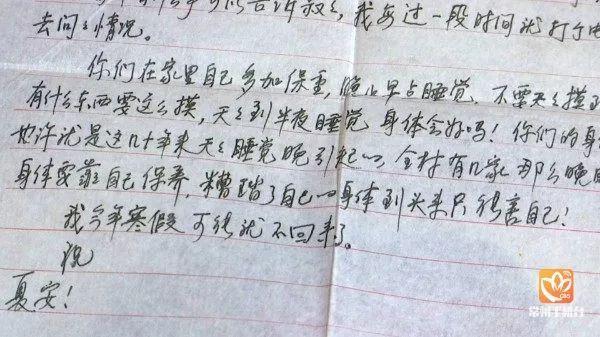 可以告诉叔々,我每过一段时间就打个电
去问々情况。
你们在家里自己多加保重,晚上早点睡觉,不要天々摸到
有什么东西要这么摸,天々到半夜睡觉 身体会好吗!你们的身
也许就是这几十年来天々睡觉晚引起的,全村有几家那么晚
身体要靠自己保养,糟蹋了自己的身体到头来只能害自己!
我今年寒假可能就不回来了。
祝
夏安!
常州手机台